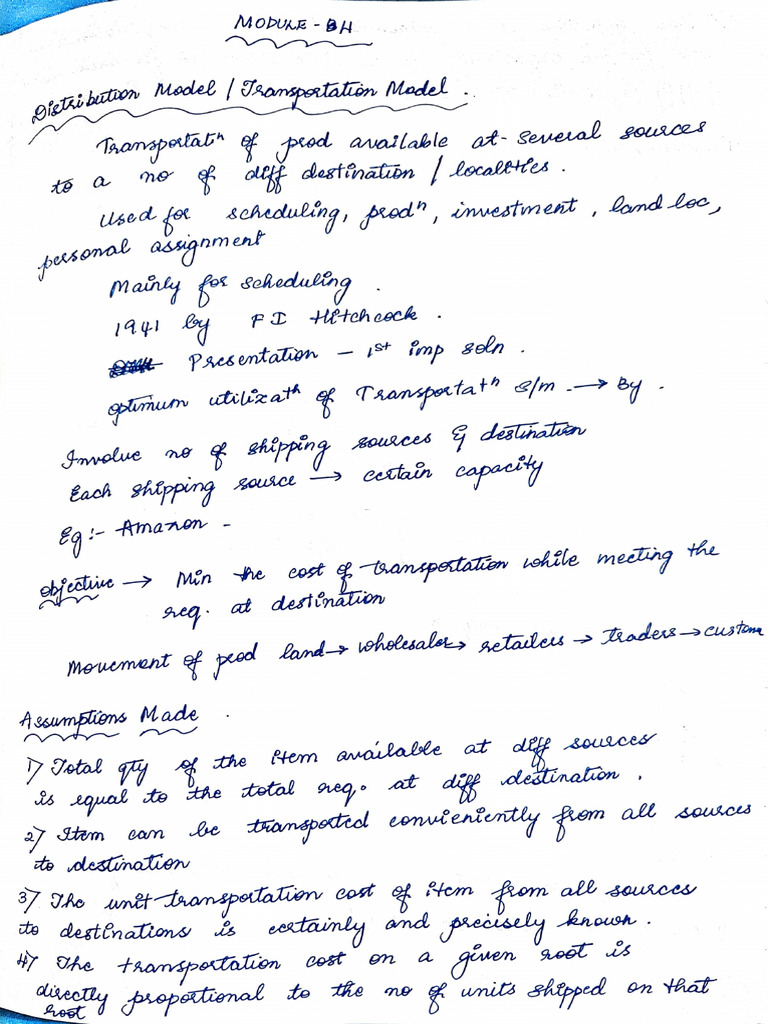 MODULE - 4
Distribution Model / Transportation Model.
Transportatn of prod available at several sources
to a no of diff destination / localities.
Used for scheduling, prodn, investment, land loc,
personal assignment
Mainly for scheduling.
1941 by F I Hitchcock.
Presentation - 1st imp soln.
optimum utilizatn of Transportatn s/m → By.
Involve no of shipping sources & destination
Each shipping source → certain capacity
Eg:- Amazon -
objective → Min the cost of transportation while meeting the
req. at destination
Movement of prod land → wholesaler → retailers → traders → custome
Assumptions Made.
1) Total qty of the item available at diff sources
is equal to the total req. at diff destination.
2) Item can be transported convieniently from all sources
to destination
3) The unit transportation cost of item from all sources
to destinations is certainly and precisely known.
4) The transportation cost on a given root is
directly proportional to the no of units shipped on that
root